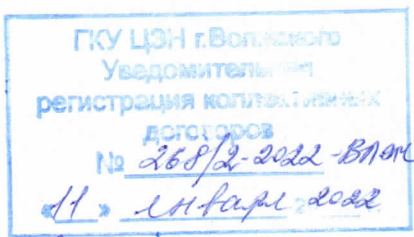 ГКУ ЦЗН г.Волжского
Уведомительная
регистрация коллективных
договоров
№ 268/2-2022-ВЛЖ
«11» января 2022